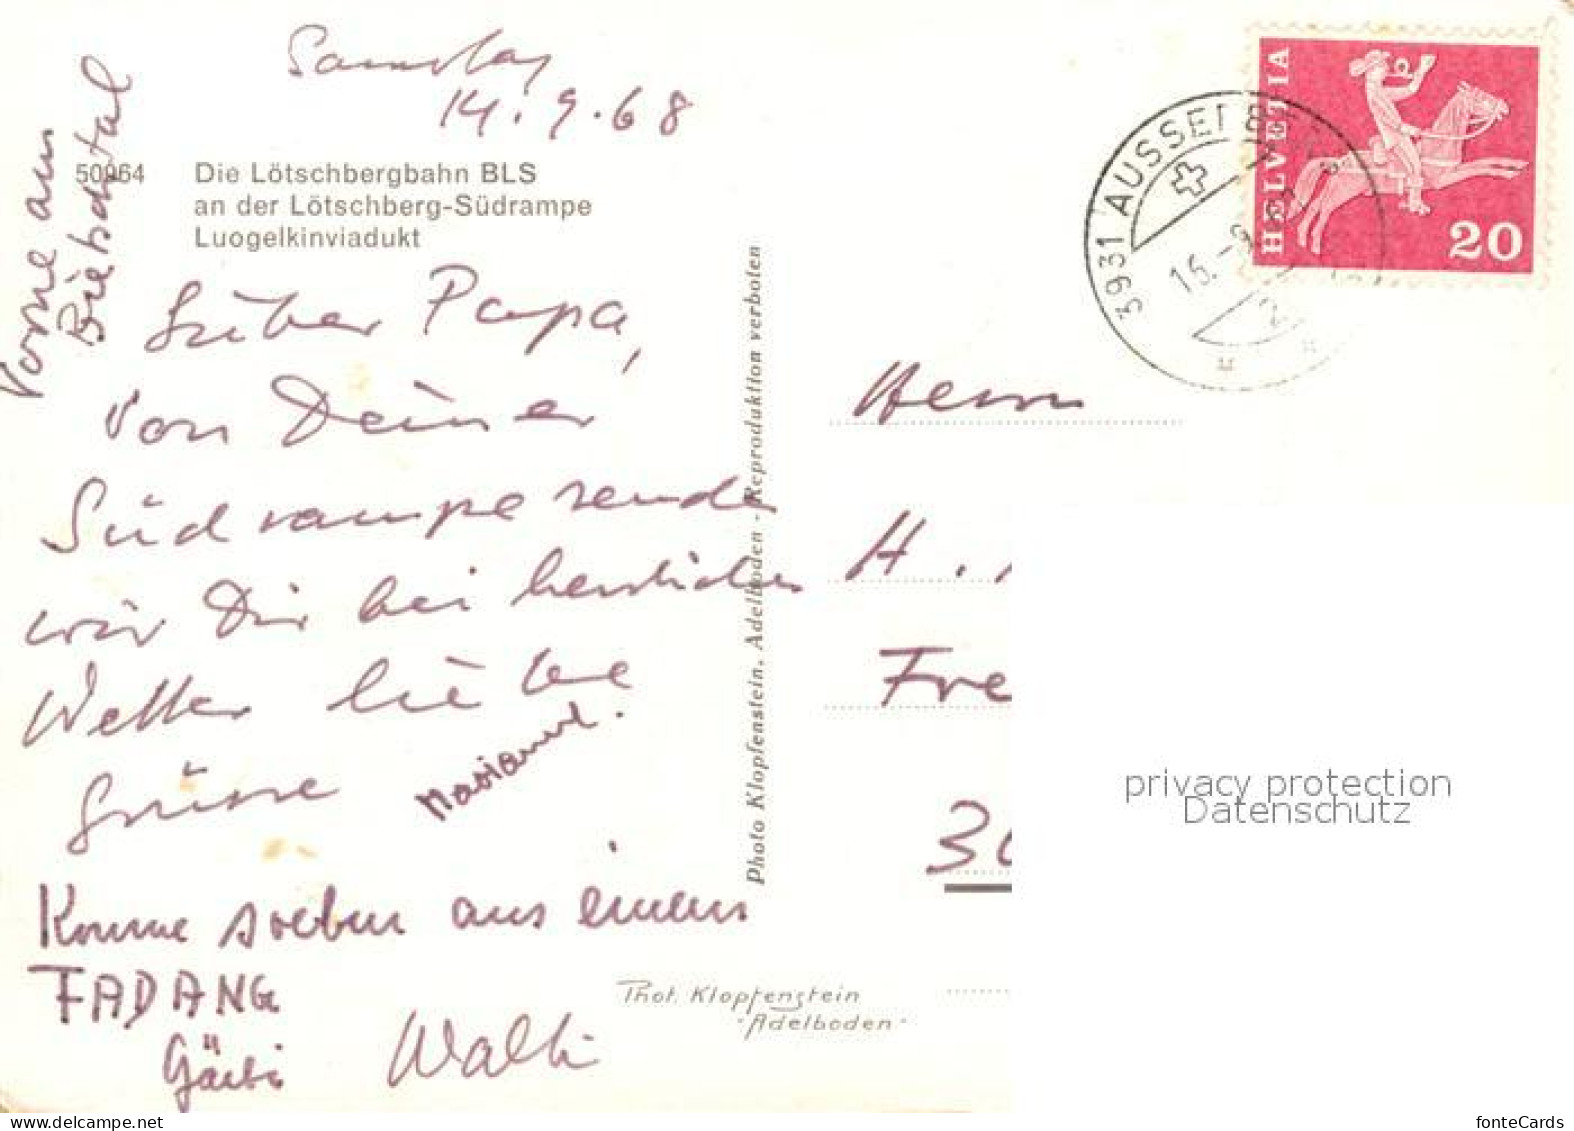 Samstag
14.9.68
Vorne am
Bietschtal
50964
Die Lötschbergbahn BLS
an der Lötschberg-Südrampe
Luogelkinviadukt
Lieber Papa,
Von Deiner
Südrampe senden
wir Dir bei herrlichem
Wetter liebe
Grüsse
Marianne.
Komme soeben aus einem
FADANG
Walti
Photo Klopfenstein, Adelboden - Reproduktion verboten
Phot. Klopfenstein
-Adelboden-
3931 AUSSERBERG
15.-9.
HELVETIA
20
Herrn
H.
Fre
30
privacy protection
Datenschutz
fonteCards